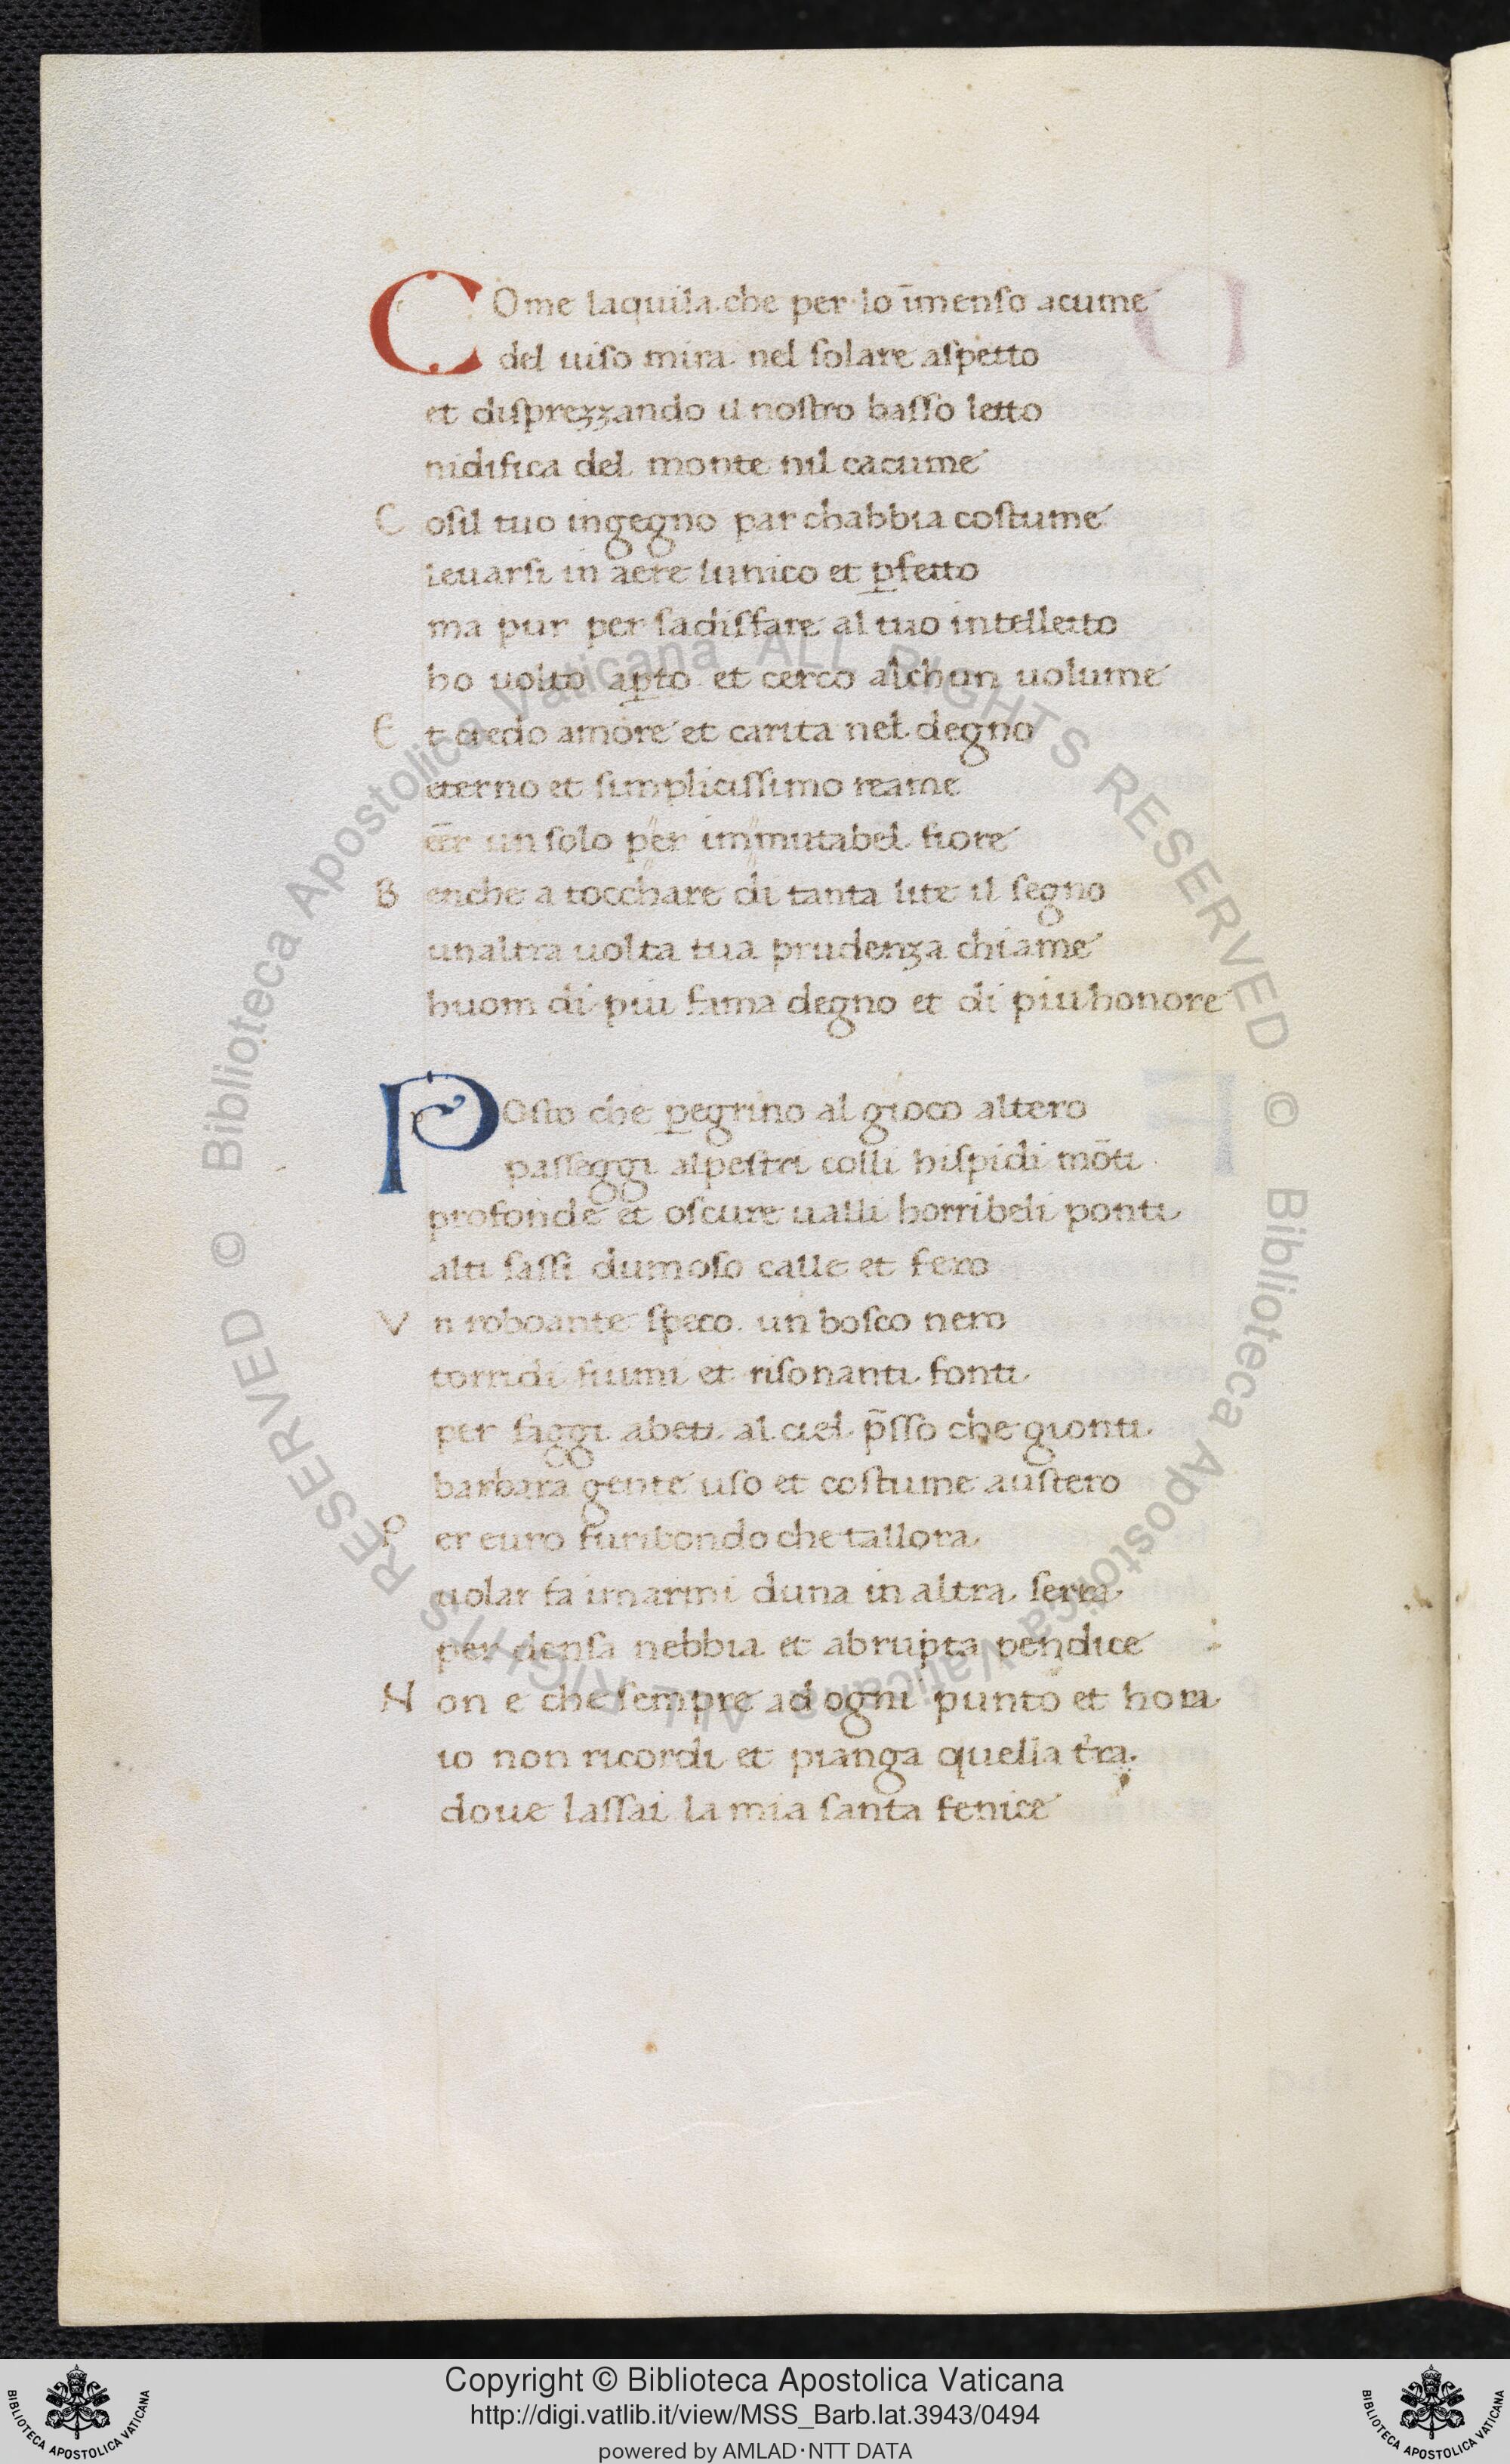 COme laquila che per lo īmenso acume
del uiso mira nel solare aspetto
et disprezzando il nostro basso letto
nidifica del monte nil cacume
Cosil tuo ingegno par chabbia costume
leuarsi in aere lunico et ꝑfetto
ma pur per sadisfare al tuo intelletto
ho uolto aꝑto et cerco alchun uolume
Et credo amore et carita nel degno
eterno et simplicissimo reame
eēr un solo per immutabel fiore
Benche a tocchare di tanta lite il segno
unaltra uolta tua prudenza chiame
huom di piu fama degno et di piu honore
POsto che ꝑegrino al gioco altero
passeggi alpestri colli hispidi mōti
profonde et oscure ualli horribeli ponti
alti sassi dumoso calle et fero
Vn roboante speco un bosco nero
torridi fiumi et risonanti fonti
per faggi abeti al ciel p̄sso che gionti
barbara gente uso et costume austero
Per euro furibondo che tallora
uolar fa imarmi duna in altra serra
per densa nebbia et abrupta pendice
Non e che sempre ad ogni punto et hora
io non ricordi et pianga quella t'ra
doue lassai la mia santa fenice
© Biblioteca Apostolica Vaticana ALL RIGHTS RESERVED
© Biblioteca Apostolica Vaticana ALL RIGHTS RESERVED
BIBLIOTECA APOSTOLICA VATICANA
Copyright © Biblioteca Apostolica Vaticana
http://digi.vatlib.it/view/MSS_Barb.lat.3943/0494
powered by AMLAD·NTT DATA
BIBLIOTECA APOSTOLICA VATICANA